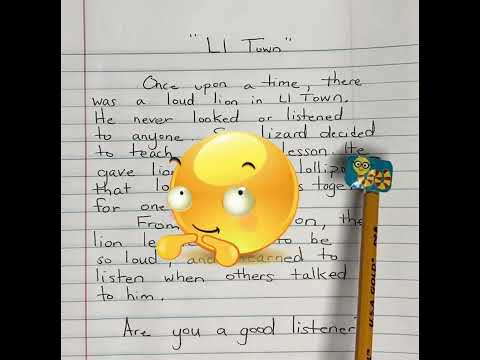 "Ll Town"
Once upon a time, there
was a loud lion in Ll Town.
He never looked or listened
to anyone. lizard decided
to teach lesson. He
gave
that
for one
From on, the
lion to be
so loud, and learned to
listen when others talked
to him.
Are you a good listener?
USA GOLD